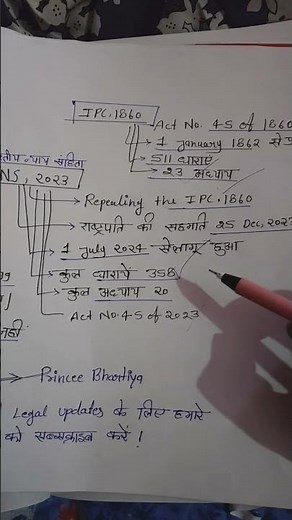 IPC.1860
Act No. 45 of 1860
1 January 1862 से
511 धाराएं
23 अध्याय
न्याय संहिता
NS, 2023
Repealing the IPC.1860
राष्ट्रपति की सहमति 25 Dec, 2023
1 July 2024 से लागू हुआ
कुल धारायें 358
कुल अध्याय 20
Act No. 45 of 2023
Princee Bhartiya
Legal updates के लिए हमारे
को सब्सक्राइब करें !